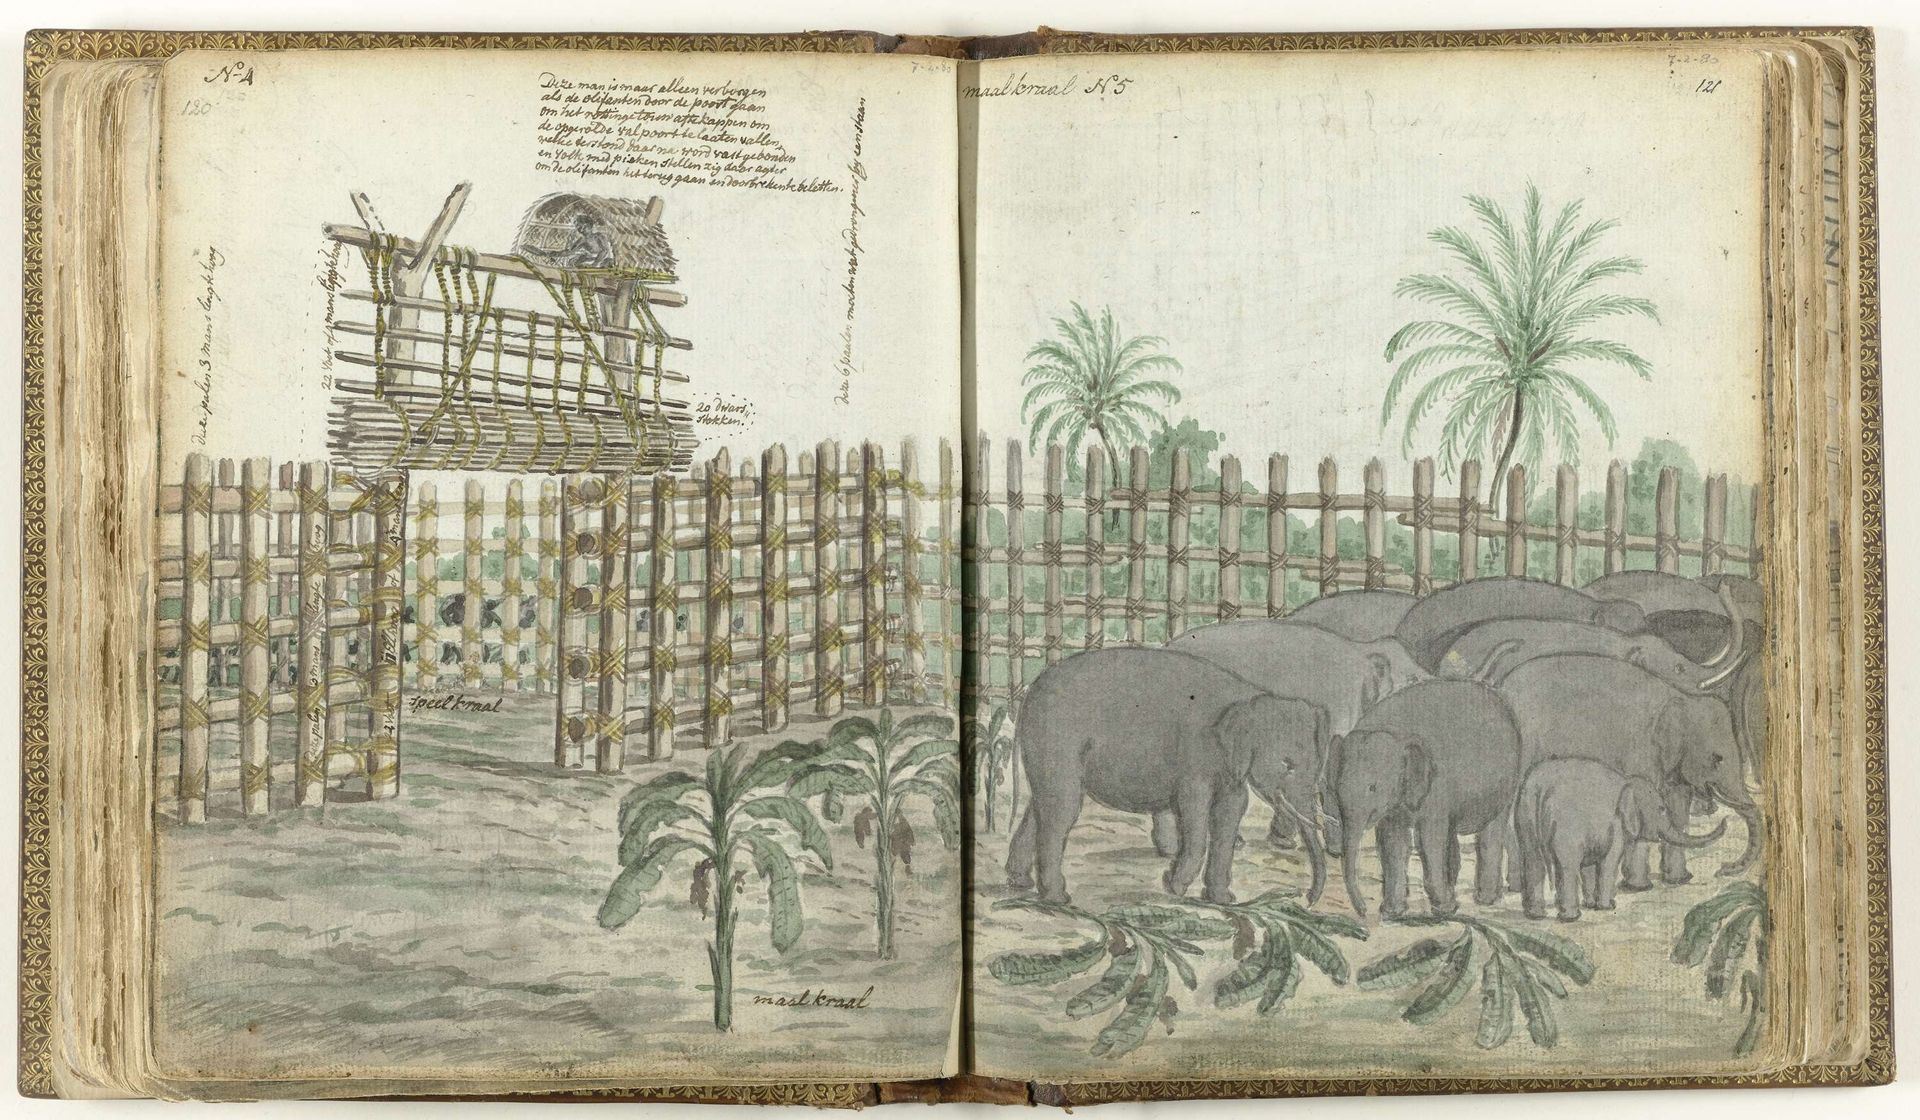 No 4
120
7-2-80
Deeze man is maar alleen verborgen
als de olifanten door de poort gaan
om het rottinge touw afte kappen om
de opgerolde valpoort te laaten vallen,
welke terstond daar na word vast gebonden
en volk med pieken stellen zig daar agter
om de olifanten het terug gaan en doorbreken te beletten.
Deeze palen 3 mans lengte hoog
22 Voet of 4 mans lengte
20 dwars
stokken.
Deeze 6 paalen moeten wat gedrongener by een staan
Deeze palen 3 mans lengte hoog
speelkraal
maalkraal
maalkraal No 5
7-2-80
121